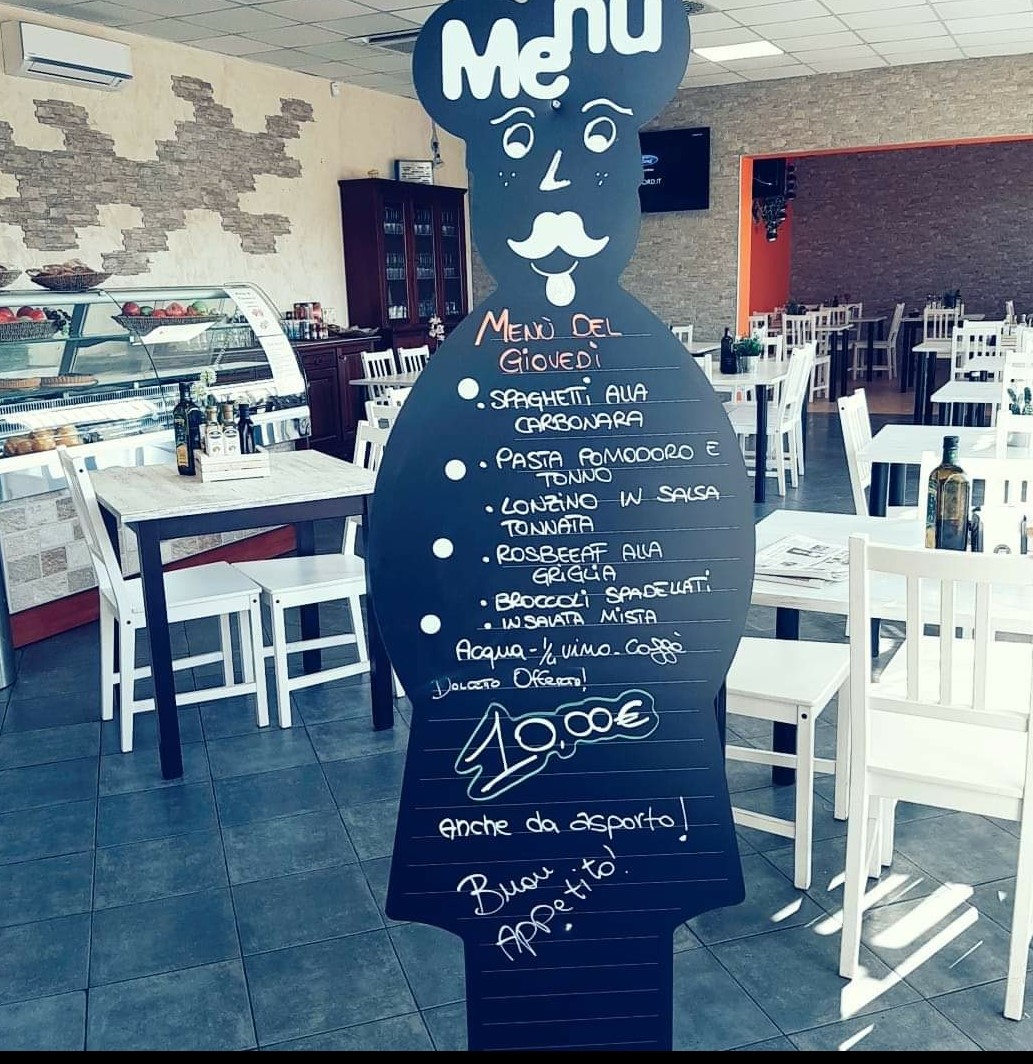 Menu
Ford
RD.IT
MENÙ DEL
GIOVEDÌ
• SPAGHETTI ALLA
CARBONARA
• PASTA POMODORO E
TONNO
• LONZINO IN SALSA
TONNATA
• ROSBEEAF ALLA
GRIGLIA
• BROCCOLI SPADELLATI
• INSALATA MISTA
Acqua - 1/4 vino - Caffè
DOLCETTO OFFERTO!
10,00€
Anche da asporto!
Buon
Appetito!